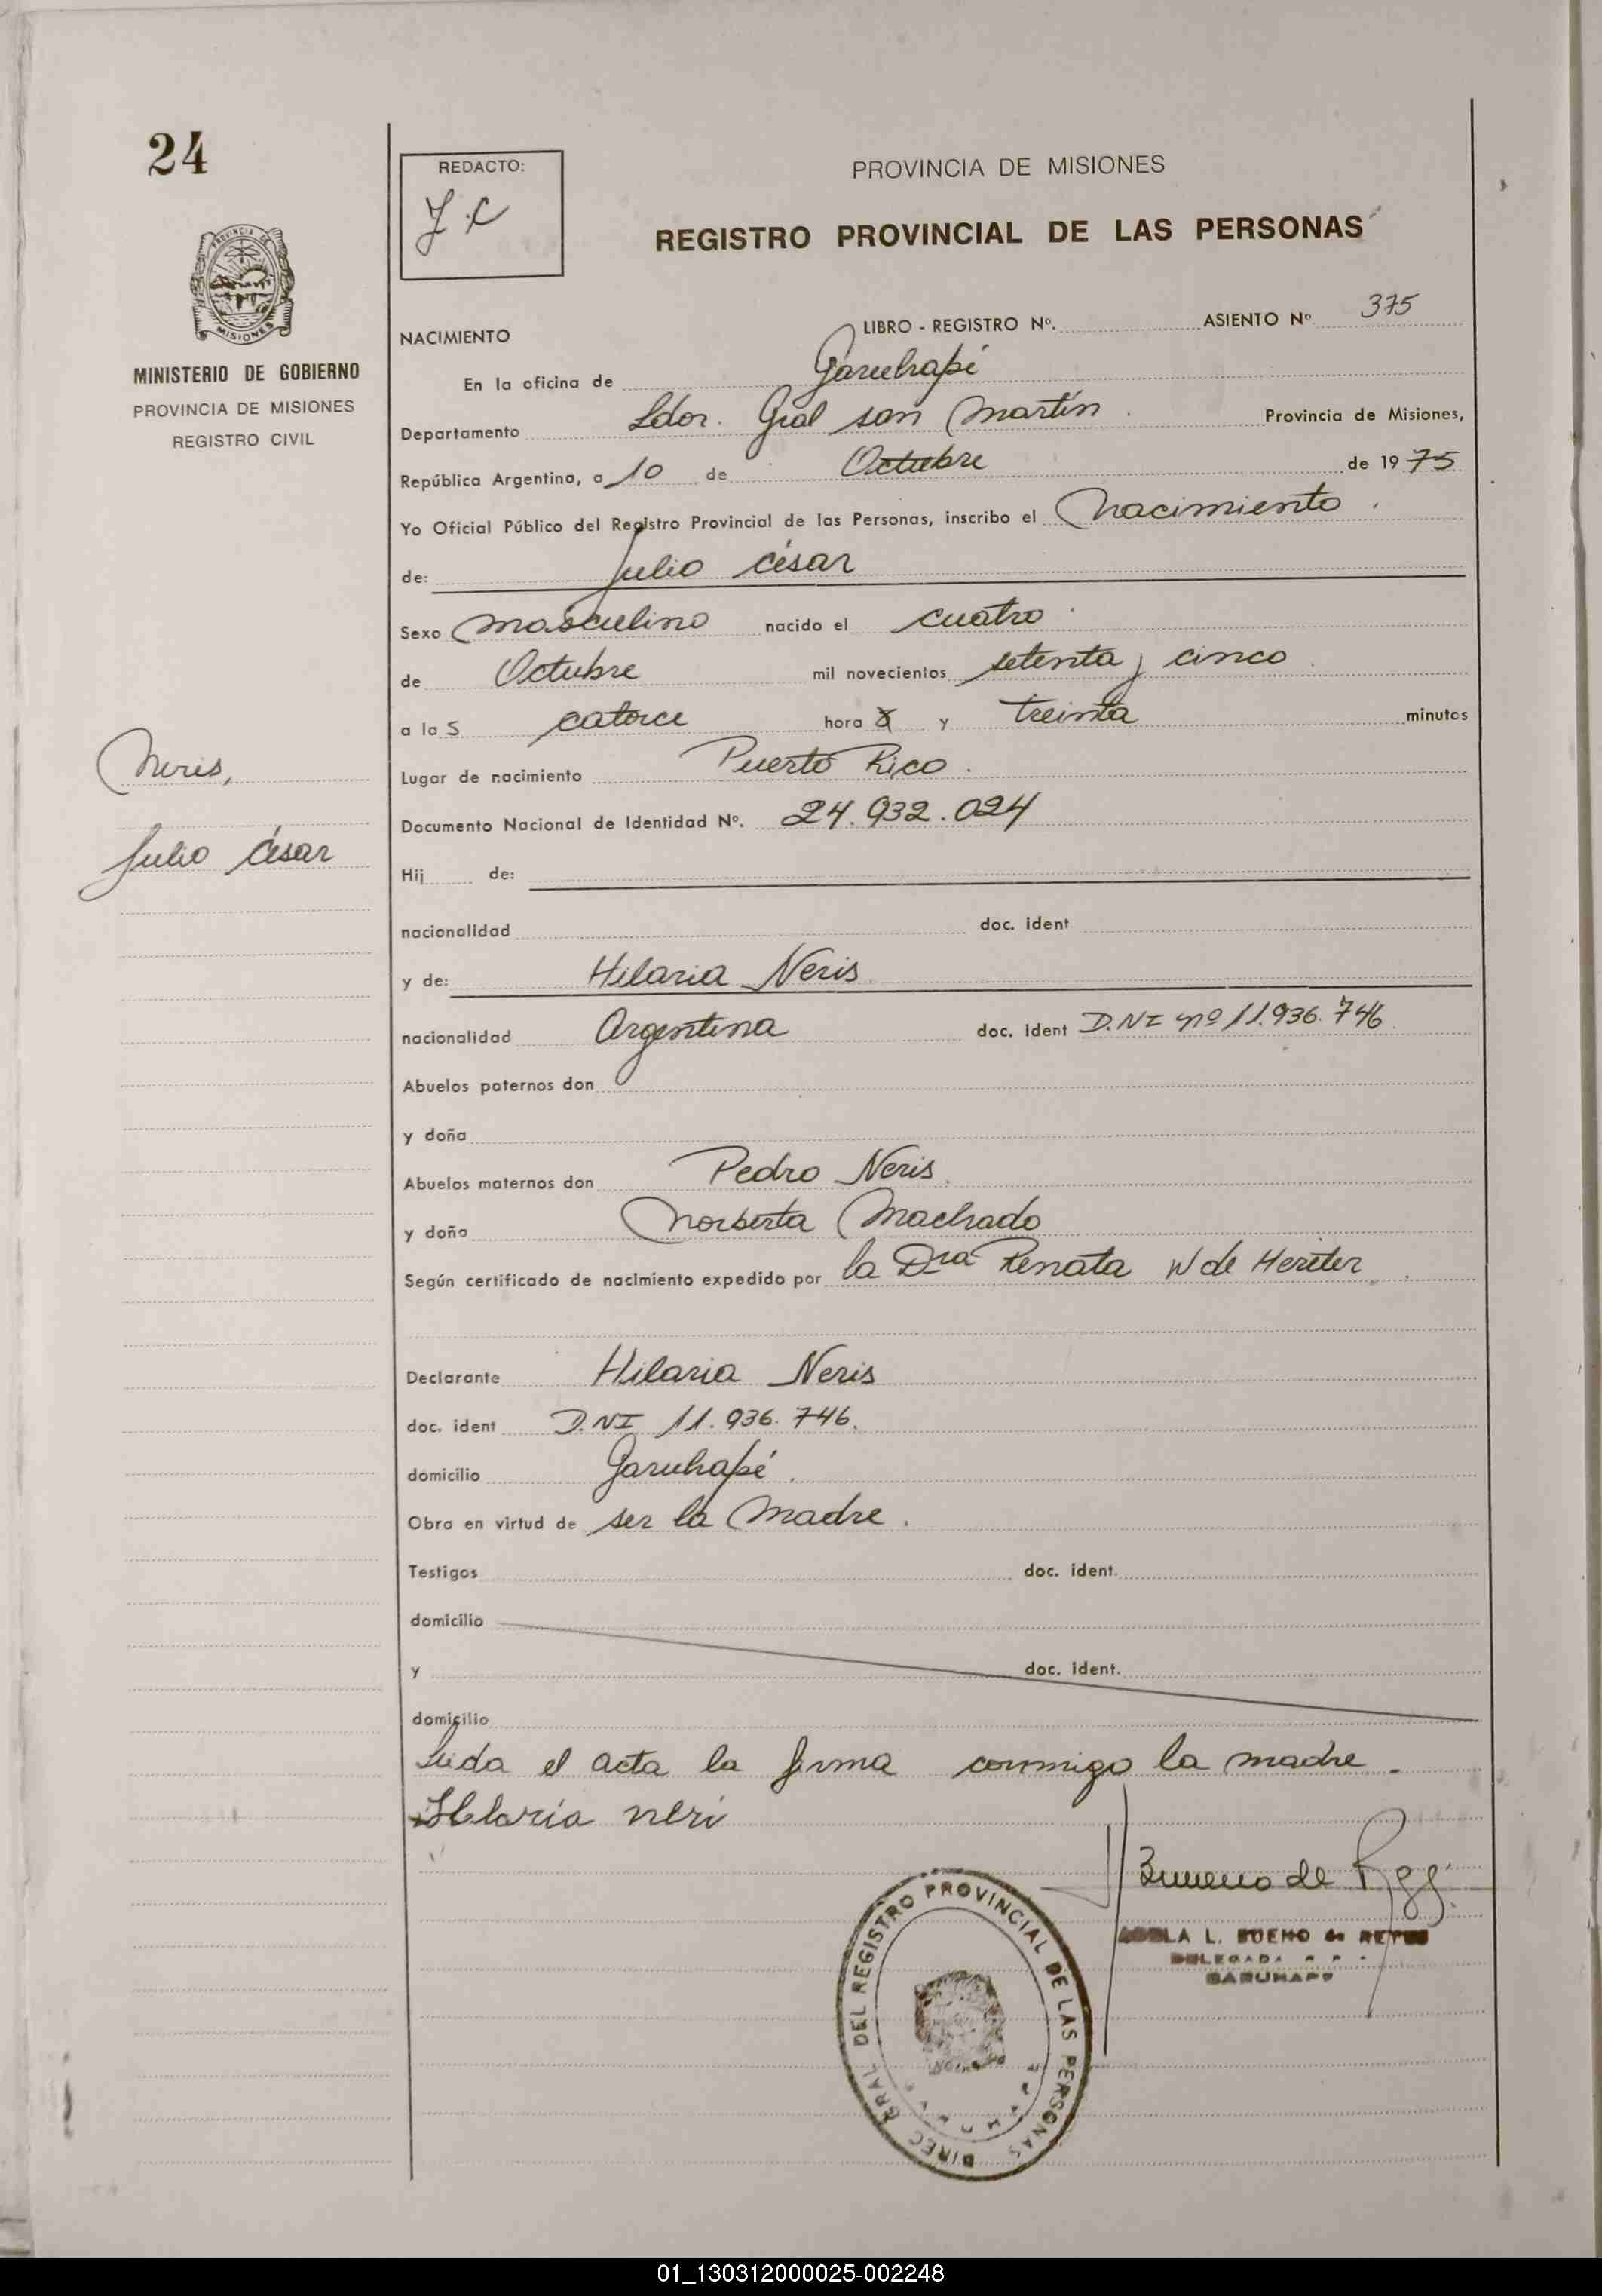 24
REDACTO:
J.C
PROVINCIA DE MISIONES
REGISTRO PROVINCIAL DE LAS PERSONAS
PROVINCIA DE
MISIONES
MINISTERIO DE GOBIERNO
PROVINCIA DE MISIONES
REGISTRO CIVIL
NACIMIENTO LIBRO - REGISTRO Nº. ASIENTO Nº 375
En la oficina de Garuhapé
Departamento Ldor. Gral san Martín. Provincia de Misiones,
República Argentina, a 10 de Octubre de 1975
Yo Oficial Público del Registro Provincial de las Personas, inscribo el Nacimiento.
de: Julio César
Sexo Masculino nacido el cuatro
de Octubre mil novecientos setenta y cinco
a las catorce hora y treinta minutos
Neris,
Julio César
Lugar de nacimiento Puerto Rico.
Documento Nacional de Identidad Nº. 24.932.024
Hij de:
nacionalidad doc. ident
y de: Hilaria Neris
nacionalidad Argentina doc. ident D.NI nº 11.936.746
Abuelos paternos don
y doña
Abuelos maternos don Pedro Neris
y doña Norberta Machado
Según certificado de nacimiento expedido por la Dra Renata W de Hereter
Declarante Hilaria Neris
doc. ident D.NI 11.936.746.
domicilio Garuhapé.
Obra en virtud de ser la Madre.
Testigos doc. ident.
domicilio
y doc. ident.
domicilio
Leida el acta la firma conmigo la madre.
Hilaria neri
Bueno de
L. BUENO de REYES
DELEGADA
GARUHAPE
DIREC GRAL DEL REGISTRO PROVINCIAL DE LAS PERSONAS
01_130312000025-002248